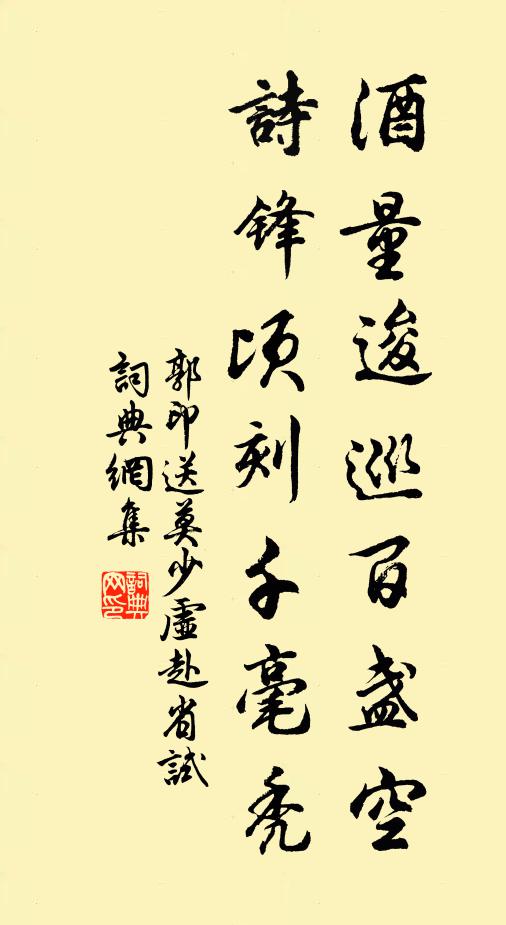 酒量逡巡百盏空
詩鋒頃刻千毫秃
郭印送莫少虛赴省試
詞典網集
詞典网印